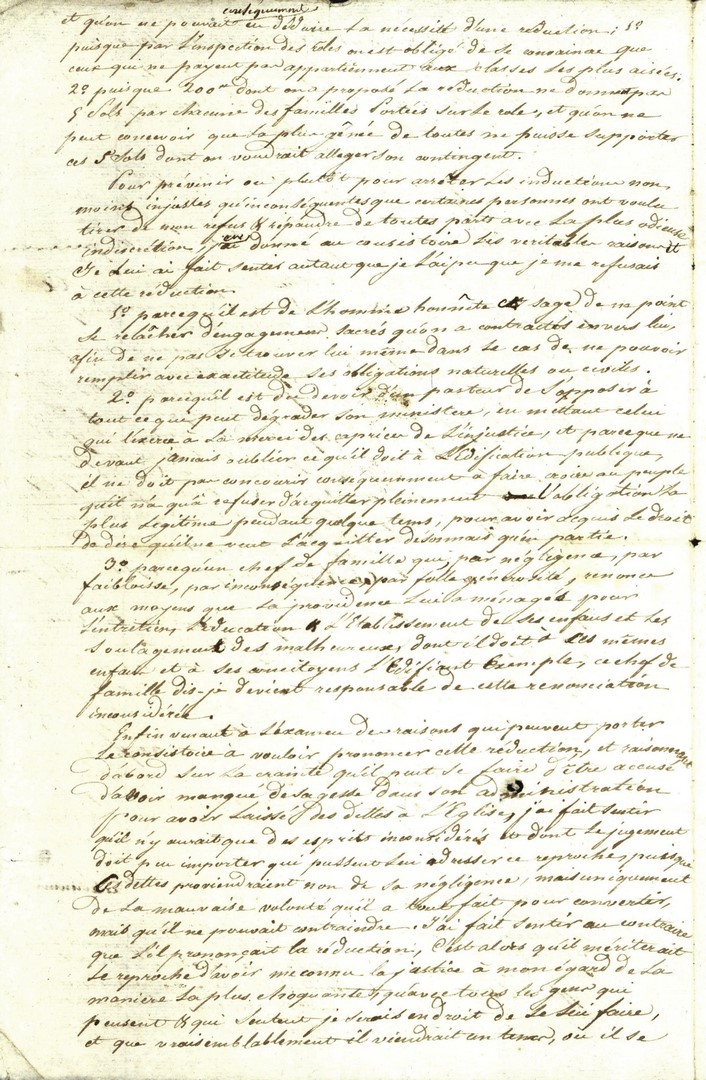 consequemment
et qu'on ne pouvait en déduire la nécessité d'une réduction; 1º
puisque par l'inspection des roles on est obligé de se convaincre que
ceux qui ne payent pas appartiennent aux classes les plus aisées.
2º puisque 200 dont on a proposé la réduction ne donnent pas
5 sols par chacune des familles portées sur le role, et qu'on ne
peut concevoir que la plus génée de toutes ne puisse supporter
ces 5 sols dont on voudrait alleger son contingent.
Pour prévenir ou plutôt pour arrêter les inductions non
moins injustes qu'inconséquentes que certaines personnes ont voulu
tirer de mon refus & répandre de toutes parts avec la plus odieuse
indiscrétion, j'en ai donné au consistoire les veritables raisons et
je lui ai fait sentir autant que je l'ai pu que je me refusais
à cette réduction
1º parcequ'il est de l'homme honnête & sage de ne point
se relâcher d'engagemens sacrés qu'on a contractés envers lui,
afin de ne pas se trouver lui même dans le cas de ne pouvoir
remplir avec exactitude ses obligations naturelles ou civiles.
2º parcequ'il est du devoir d'un pasteur de s'opposer à
tout ce que peut dégrader son ministere, en mettant celui
qui l'exerce à la merci des caprices de l'injustice, et parceque ne
devant jamais oublier ce qu'il doit à l'Edification publique,
il ne doit pas concourir consequemment à faire croire au peuple
qu'il n'a qu'à refuser d'acquitter pleinement l'obligation la
plus légitime pendant quelque tems, pour avoir acquis le droit
de dire qu'il ne veut l'acquitter desormais qu'en partie.
3º parcequ'un chef de famille qui, par négligence, par
faiblaisse, par inconsequence, par folle générosité, renonce
aux moyens que la providence lui a ménagés pour
l'entretien, l'éducation & l'Etablissement de ses enfans et les
soulagemens des malheureux, dont il doit à ces mêmes
enfans et à ses concitoyens l'Edifiant Exemple, ce chef de
famille dis-je devient responsable de cette renonciation
inconsidérée.
Enfin venant à l'examen de raisons qui peuvent porter
le consistoire à vouloir prononcer cette réduction, et raisonnant
d'abord sur la crainte qu'il peut se faire d'être accusé
d'avoir manqué de sagesse dans son administration
pour avoir laissé des dettes à l'Eglise, j'ai fait sentir
qu'il n'y aurait que des esprits inconsidérés et dont le jugement
doit peu importer qui pussent lui adresser ce reproche, puisque
ces dettes proviendraient non de sa négligence, mais uniquement
de la mauvaise volonté qu'il a tout fait pour convertir,
mais qu'il ne pouvait contraindre. J'ai fait sentir au contraire
que s'il prononçait la réduction, c'est alors qu'il mériterait
le reproche d'avoir méconnu la justice à mon égard de la
maniere la plus choquante, qu'avec tous les gens qui
pensent & qui sentent je serais en droit de le lui faire,
et que vraisemblablement il viendrait un tems, où il se